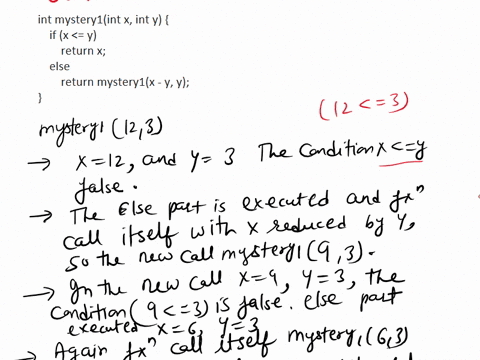 int mystery1(int x, int y) {
if (x <= y)
return x;
else
return mystery1(x - y, y);
}
(12 <= 3)
mystery1 (12,3)
→ x=12, and y= 3 The Condition x<=y
false.
→ The Else part is executed and fxⁿ
call itself with x reduced by y,
so the new call mystery1(9,3).
→ In the new call x=9, y=3, the
Condition( 9<=3) is false. else part
executed x=6, y=3
→ Again fxⁿ call itself mystery1(6,3)